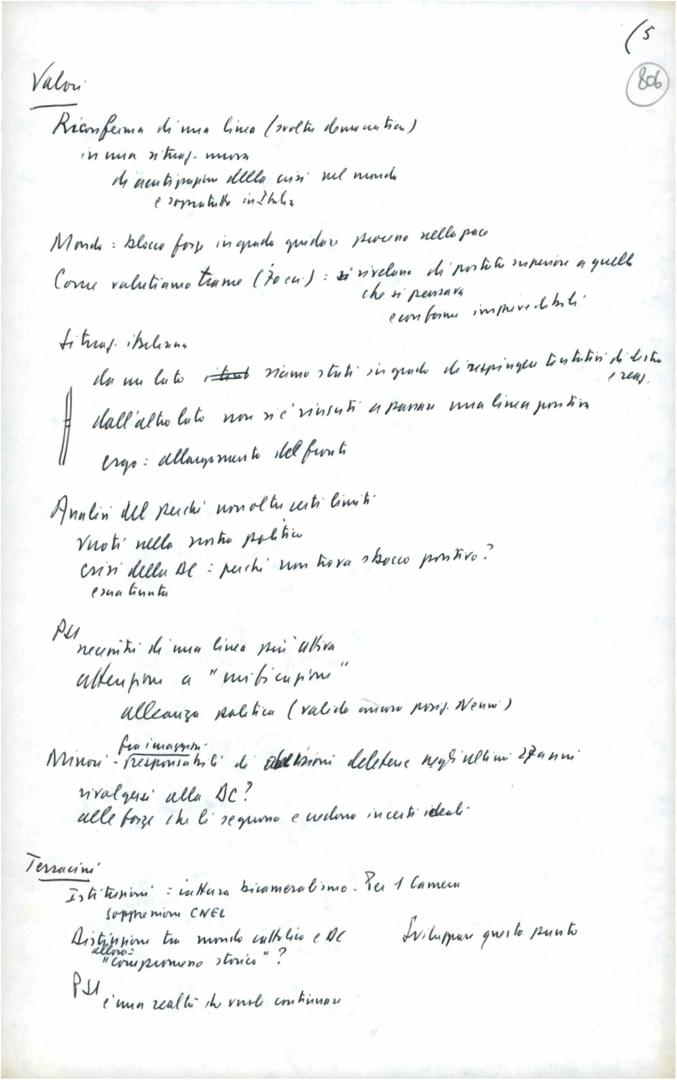 (5
806
Valori
Riconferma di una linea (svolta democratica)
in una situaz. nuova
di acutizzazione della crisi nel mondo
e soprattutto in Italia
Mondo : blocco forze in grado guidare processo nella pace
Come valutiamo trame ( ) : si rivelano di portata superiore a quella
che si pensava
e con forme imprevedibili
Situaz. italiana
da un lato siamo stati in grado di respingere tentativi di destra
e reaz.
dall'altro lato non si è riusciti a passare una linea positiva
ergo : allargamento del fronte
Analisi del perché non oltre certi limiti
vuoti nella nostra politica
crisi della DC : perché non trova sbocco positivo ?
e sua tenuta
PSI
necessità di una linea più attiva
attenzione a "unificazione"
alleanza politica (valida ancora posiz. Nenni)
Minori - responsabili di decisioni deleterie negli ultimi 27 anni
fra i maggiori
rivolgersi alla DC ?
alle forze che li seguono e credono in certi ideali
Terracini
Istituzioni : bicameralismo. Per 1 Camera
soppressione CNEL
Distinzione tra mondo cattolico e DC Sviluppare questo punto
allora :
"Compromesso storico" ?
PSI
è una realtà che vuole continuare